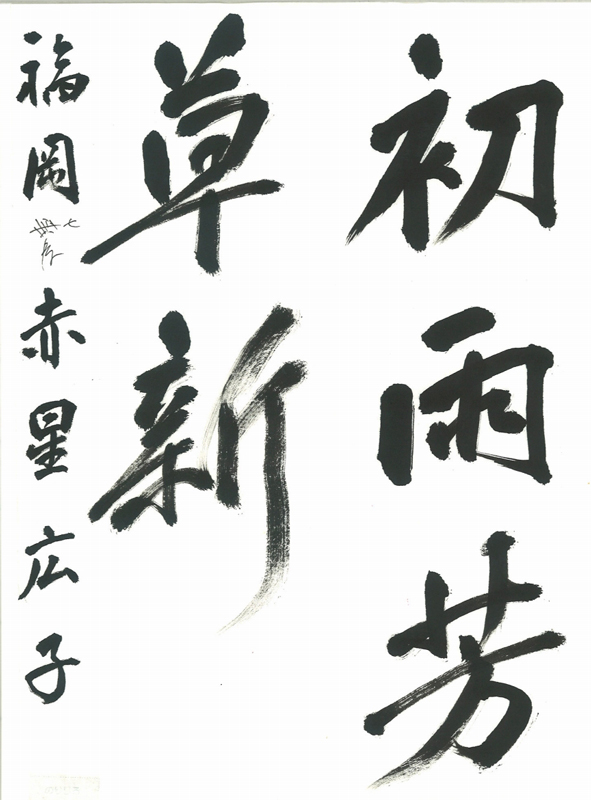 初雨芳
草新
福岡 赤星広子